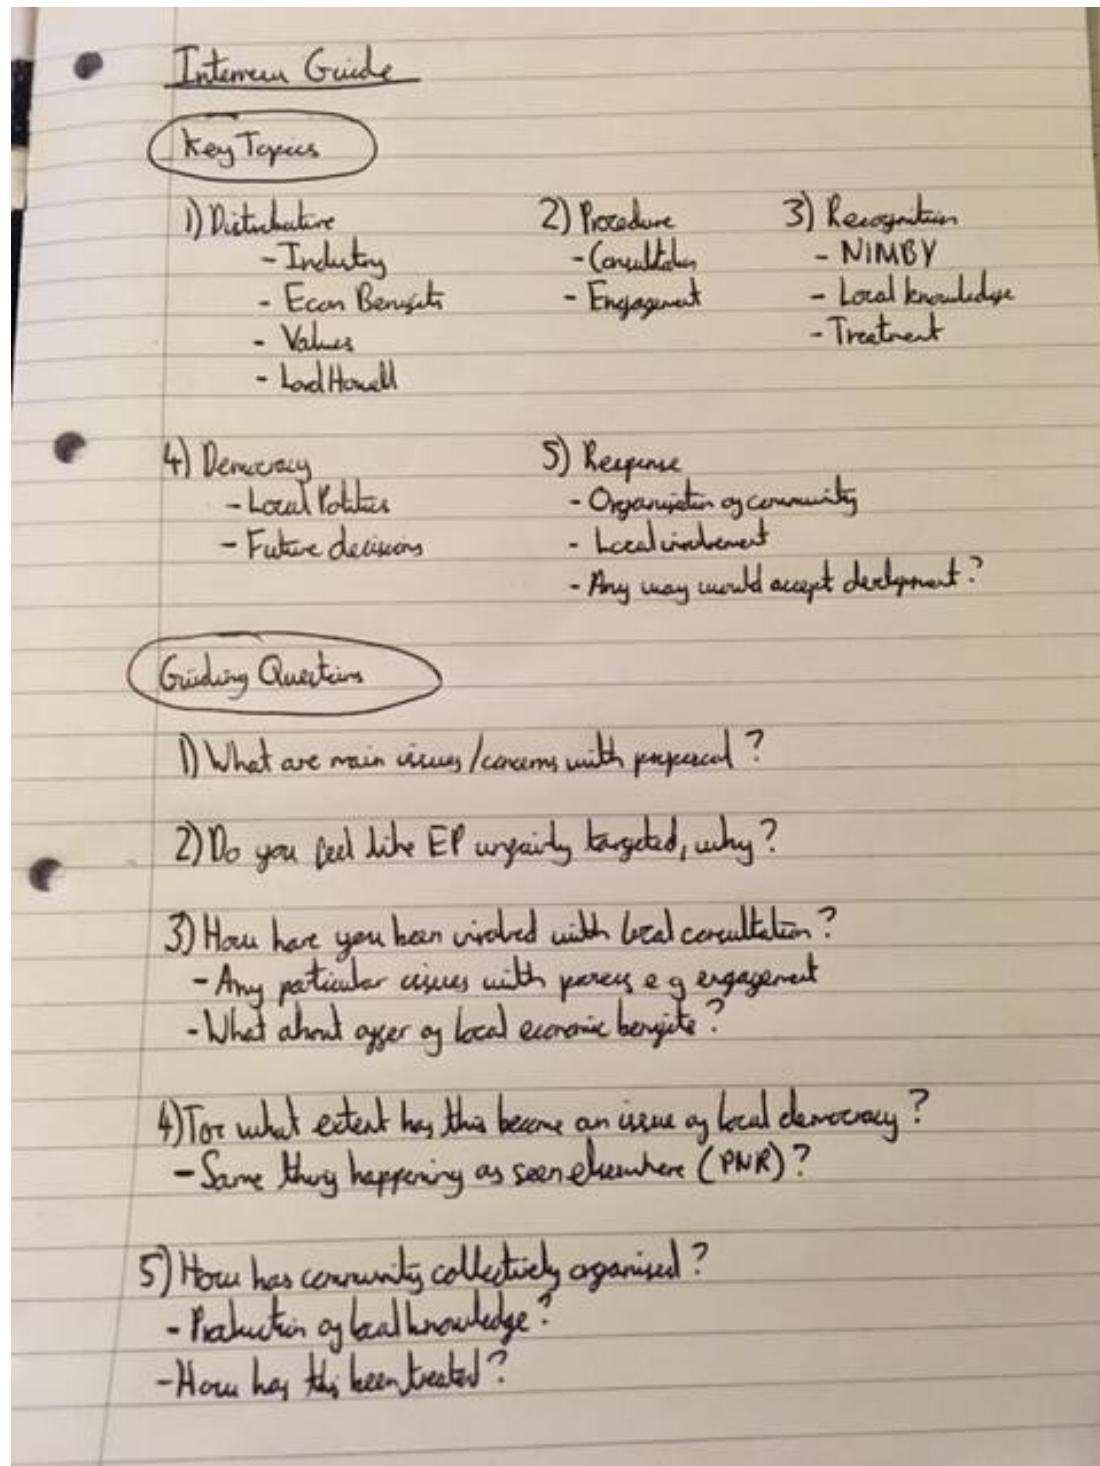 Interview Guide
Key Topics
1) Distributive
- Industry
- Econ Benefits
- Values
- Lord Howell
2) Procedure
- Consultation
- Engagement
3) Recognition
- NIMBY
- Local knowledge
- Treatment
4) Democracy
- Local Politics
- Future decisions
5) Response
- Organisation of community
- Local involvement
- Any way would accept development?
Guiding Questions
1) What are main issues/concerns with proposal?
2) Do you feel like EP unfairly targeted, why?
3) How have you been involved with local consultation?
- Any particular issues with process e g engagement
- What about offer of local economic benefits?
4) Tor what extent has this become an issue of local democracy?
- Same thing happening as seen elsewhere (PNR)?
5) How has community collectively organised?
- Production of local knowledge?
- How has this been treated?